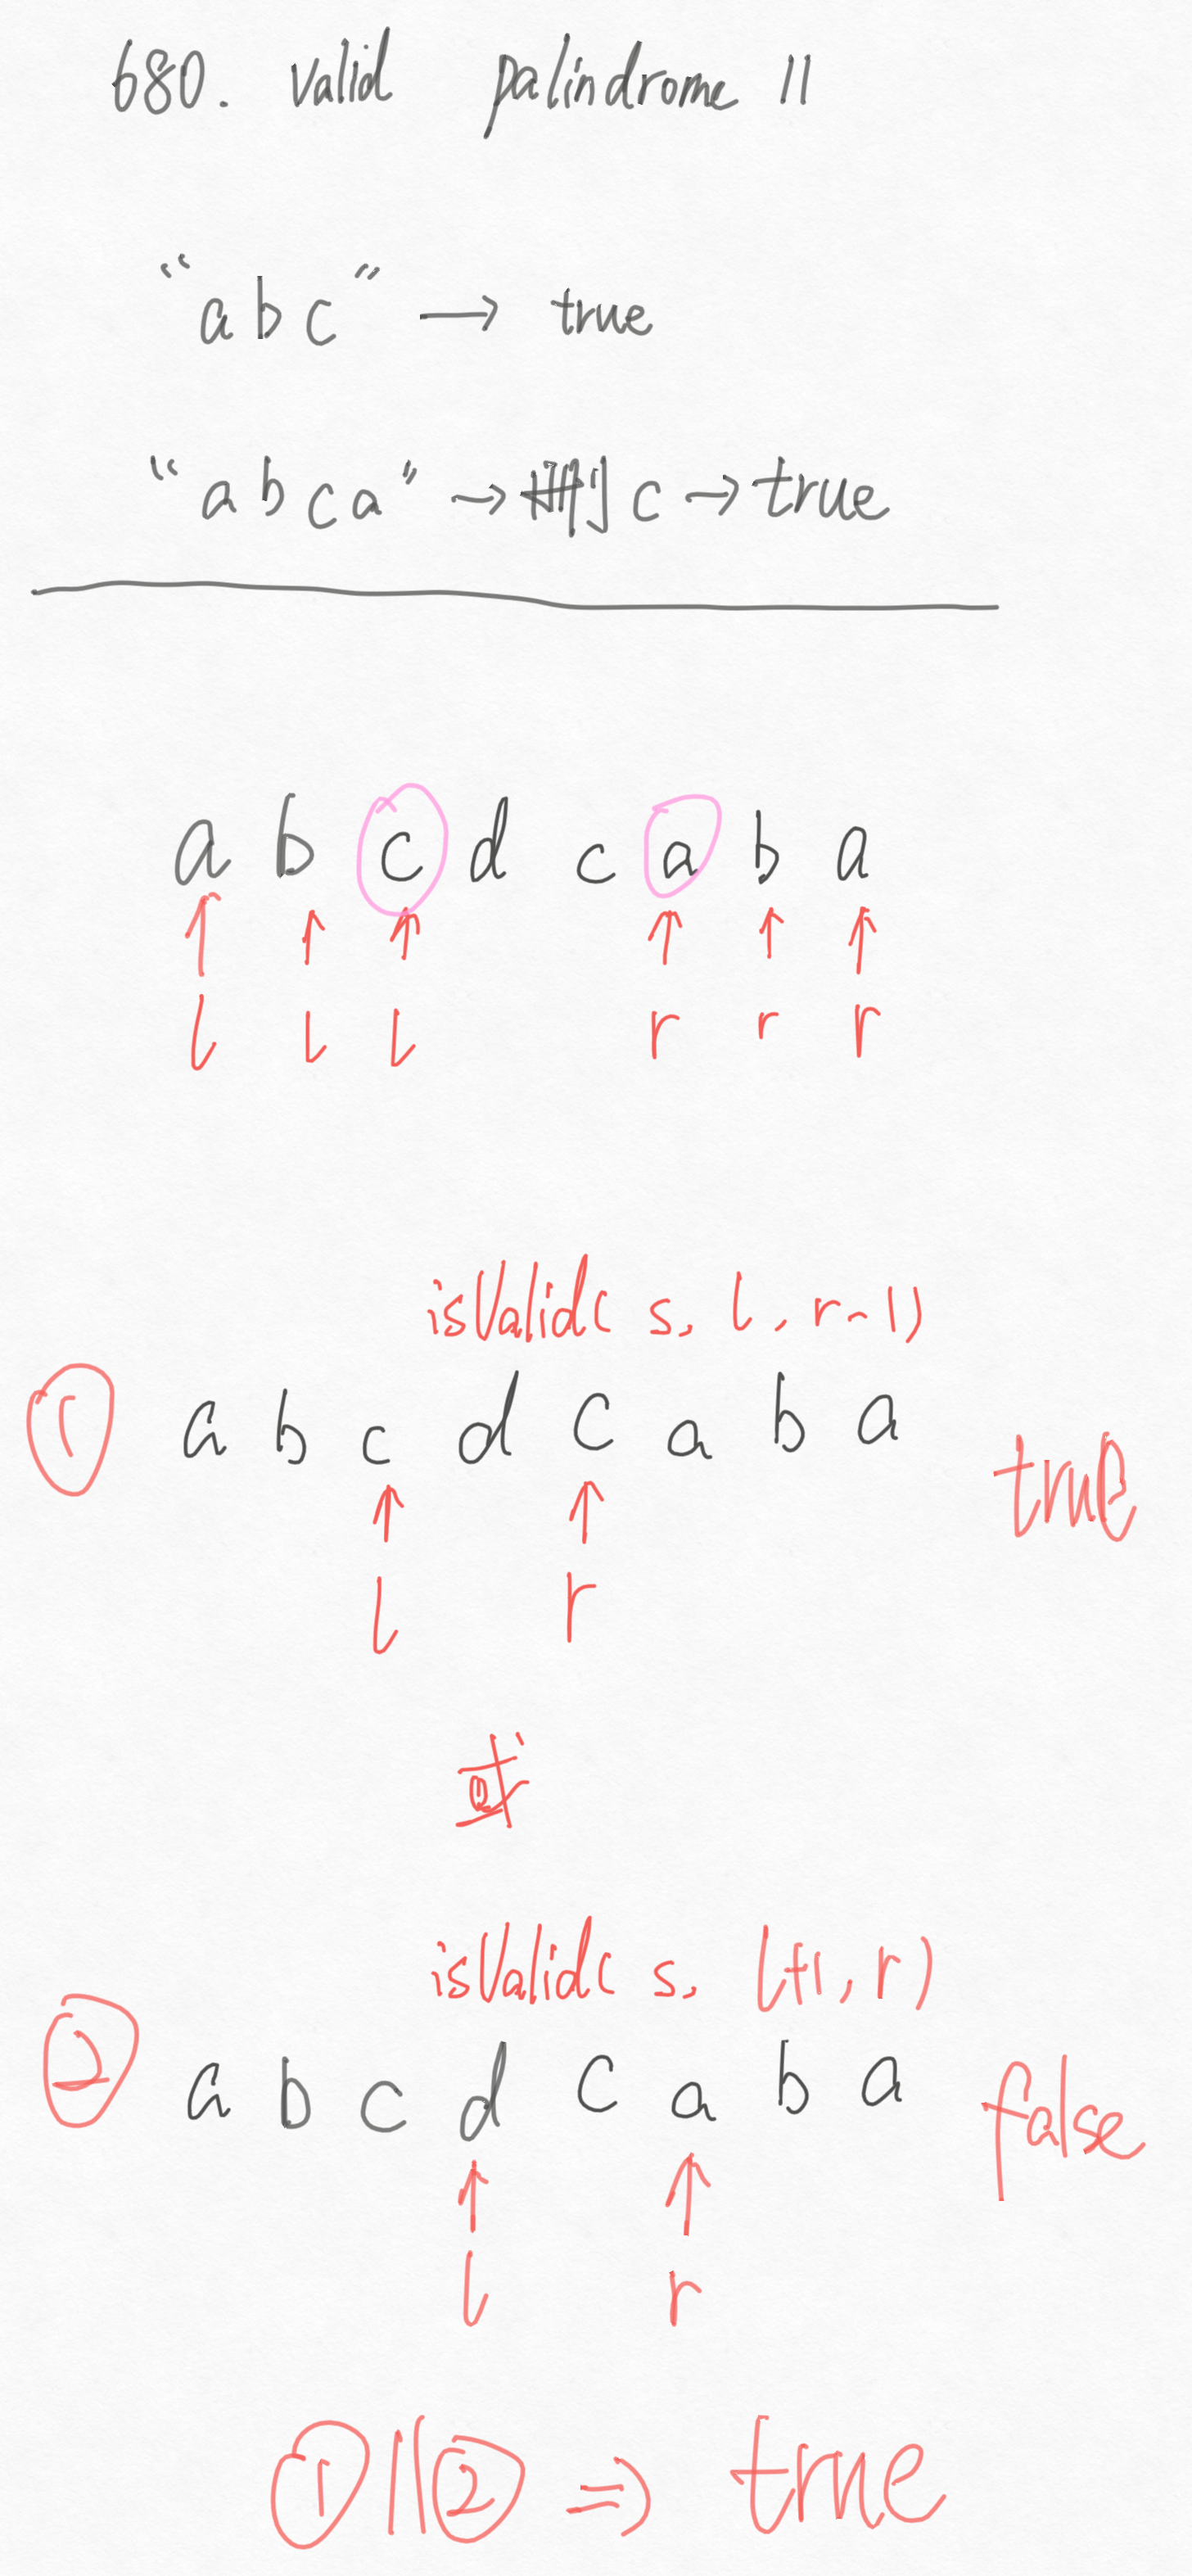 680. valid palindrome II
"abc" → true
"abca" → 删c → true
a b c d c a b a
↑ ↑ ↑ ↑ ↑ ↑
l l l r r r
isValid( s, l, r-1)
① a b c d c a b a true
↑ ↑
l r
或
isValid( s, l+1, r)
② a b c d c a b a false
↑ ↑
l r
①||② => true